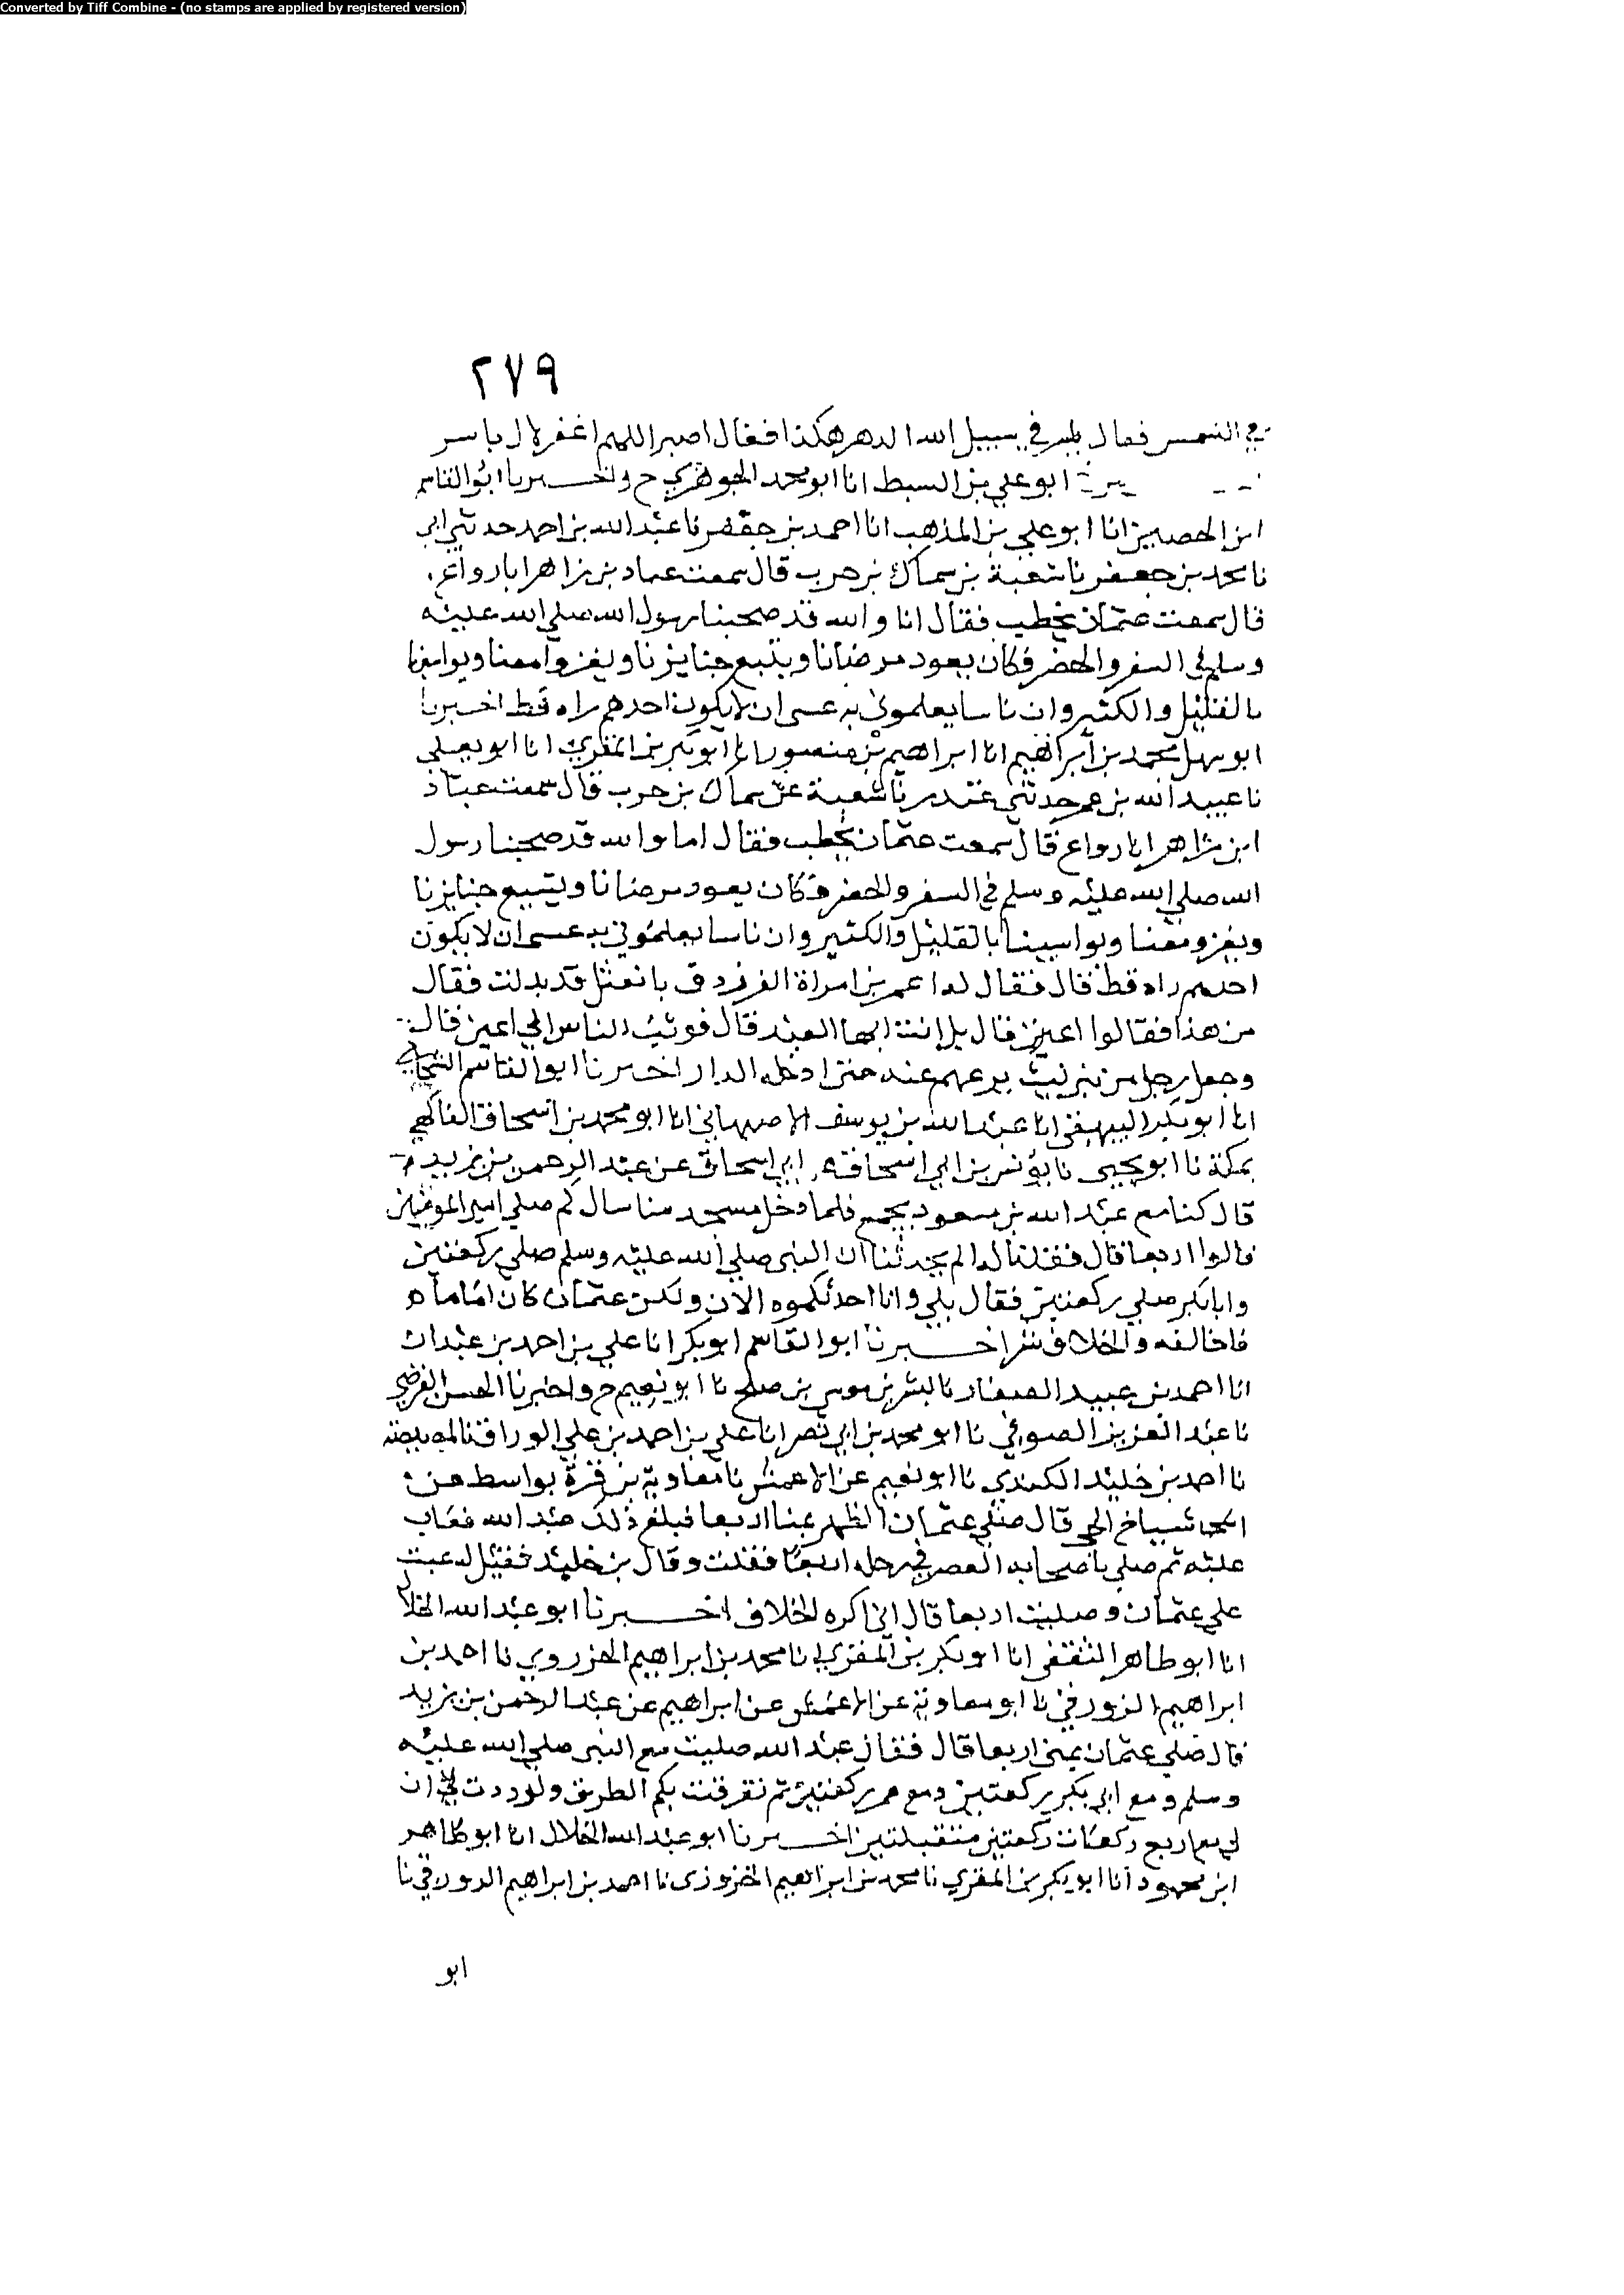 Converted by Tiff Combine - (no stamps are applied by registered version)
٢٧٩
في الشمس فقال ياسر في سبيل الله الدهر هكذا فقال اصبر اللهم اغفر لال ياسر
ابو علي بن السبط انا ابو محمد الجوهري ح واخبرنا ابو القاسم
ابن الحصين انا ابو علي بن المذهب انا احمد بن جعفر نا عبد الله بن احمد حدثني ابي
نا محمد بن جعفر نا شعبة بن سماك بن حرب قال سمعت عماد بن زاهر ابا رواع
قال سمعت عثمان يخطب فقال انا والله قد صحبنا رسول الله صلي الله عليه
وسلم في السفر والحضر فكان يعود مرضانا ويتبع جنايزنا ويغزوا معنا ويواسينا
بالقليل والكثير وان ناسا يعلموني به عسى ان لا يكون احدهم راه قط اخبرنا
ابو سهل محمد بن ابراهيم انا ابراهيم بن منصور انا ابو بكر بن المقري انا ابو يعلي
نا عبيد الله بن عمر حدثني غندر نا شعبة عن سماك بن حرب قال سمعت عباد
ابن زاهر ابا رواع قال سمعت عثمان يخطب فقال اما والله قد صحبنا رسول
الله صلي الله عليه وسلم في السفر والحضر وكان يعود مرضانا ويتبع جنايزنا
ويغزو معنا ويواسينا بالقليل والكثير وان ناسا يعلموني به عسى ان لا يكون
احدهم راه قط قال فقال له اعين بن امراة الفرزدق يا نعثل قد بدلت فقال
من هذا فقالوا اعين قال بل انت ايها العبد قال فوثب الناس الي اعين قال
وجعل رجل من بني ليث يزعهم عنه حتى ادخله الدار اخبرنا ابو القاسم الشحامي
انا ابو بكر البيهقي انا عبد الله بن يوسف الاصبهاني انا ابو محمد بن اسحاق الفاكهي
بمكة نا ابو يحيى نا يونس بن ابي اسحاق ابي اسحاق عن عبد الرحمن بن يزيد
قال كنا مع عبد الله بن مسعود بجمع فلما دخل مسجد منا سال كم صلي امير المومنين
قالوا اربعا قال فقلنا له الم تحدثنا ان النبي صلي الله عليه وسلم صلي ركعتين
وابا بكر صلي ركعتين فقال بلي وانا احدثكموه الان ولكن عثمان كان اماما
فاخالفه والخلاف شر اخبرنا ابو القاسم ابو بكر انا علي بن احمد بن عبدان
انا احمد بن عبيد الصفار نا بشر بن موسى بن صالح نا ابو نعيم ح واخبرنا الحسن الفرضي
نا عبد العزيز الصوفي نا ابو محمد بن ابي نصر انا علي بن احمد بن علي الوراق نا المصيصة
نا احمد بن خليد الكندي نا ابو نعيم عن الاعمش نا معاوية بن قرة بواسط عن
اشياخ الحي قال صلي عثمان الظهر بمنا اربعا فبلغ ذلك عبد الله فعاب
عليه ثم صلي باصحابه العصر في رحله اربعا فقلت وقال بن خليد فقيل له عبت
علي عثمان وصليت اربعا قال اني اكره الخلاف اخبرنا ابو عبد الله الخلال
انا ابو طاهر الثقفي انا ابو بكر بن المقري انا محمد بن ابراهيم الحزروي نا احمد بن
ابراهيم الزورقي نا ابو معاوية عن الاعمش عن ابراهيم عن عبد الرحمن بن يزيد
قال صلي عثمان بمنى اربعا قال فقال عبد الله صليت مع النبي صلي الله عليه
وسلم ومع ابي بكر ركعتين ومع عمر ركعتين ثم تفرقت بكم الطريق ولوددت اني ان
لي بها ربع ركعات ركعتين متقبلتين اخبرنا ابو عبد الله الخلال انا ابو طاهر
ابن محمود انا ابو بكر بن المقري نا محمد بن ابراهيم الحزوزى نا احمد بن ابراهيم الدورقي نا
ابو